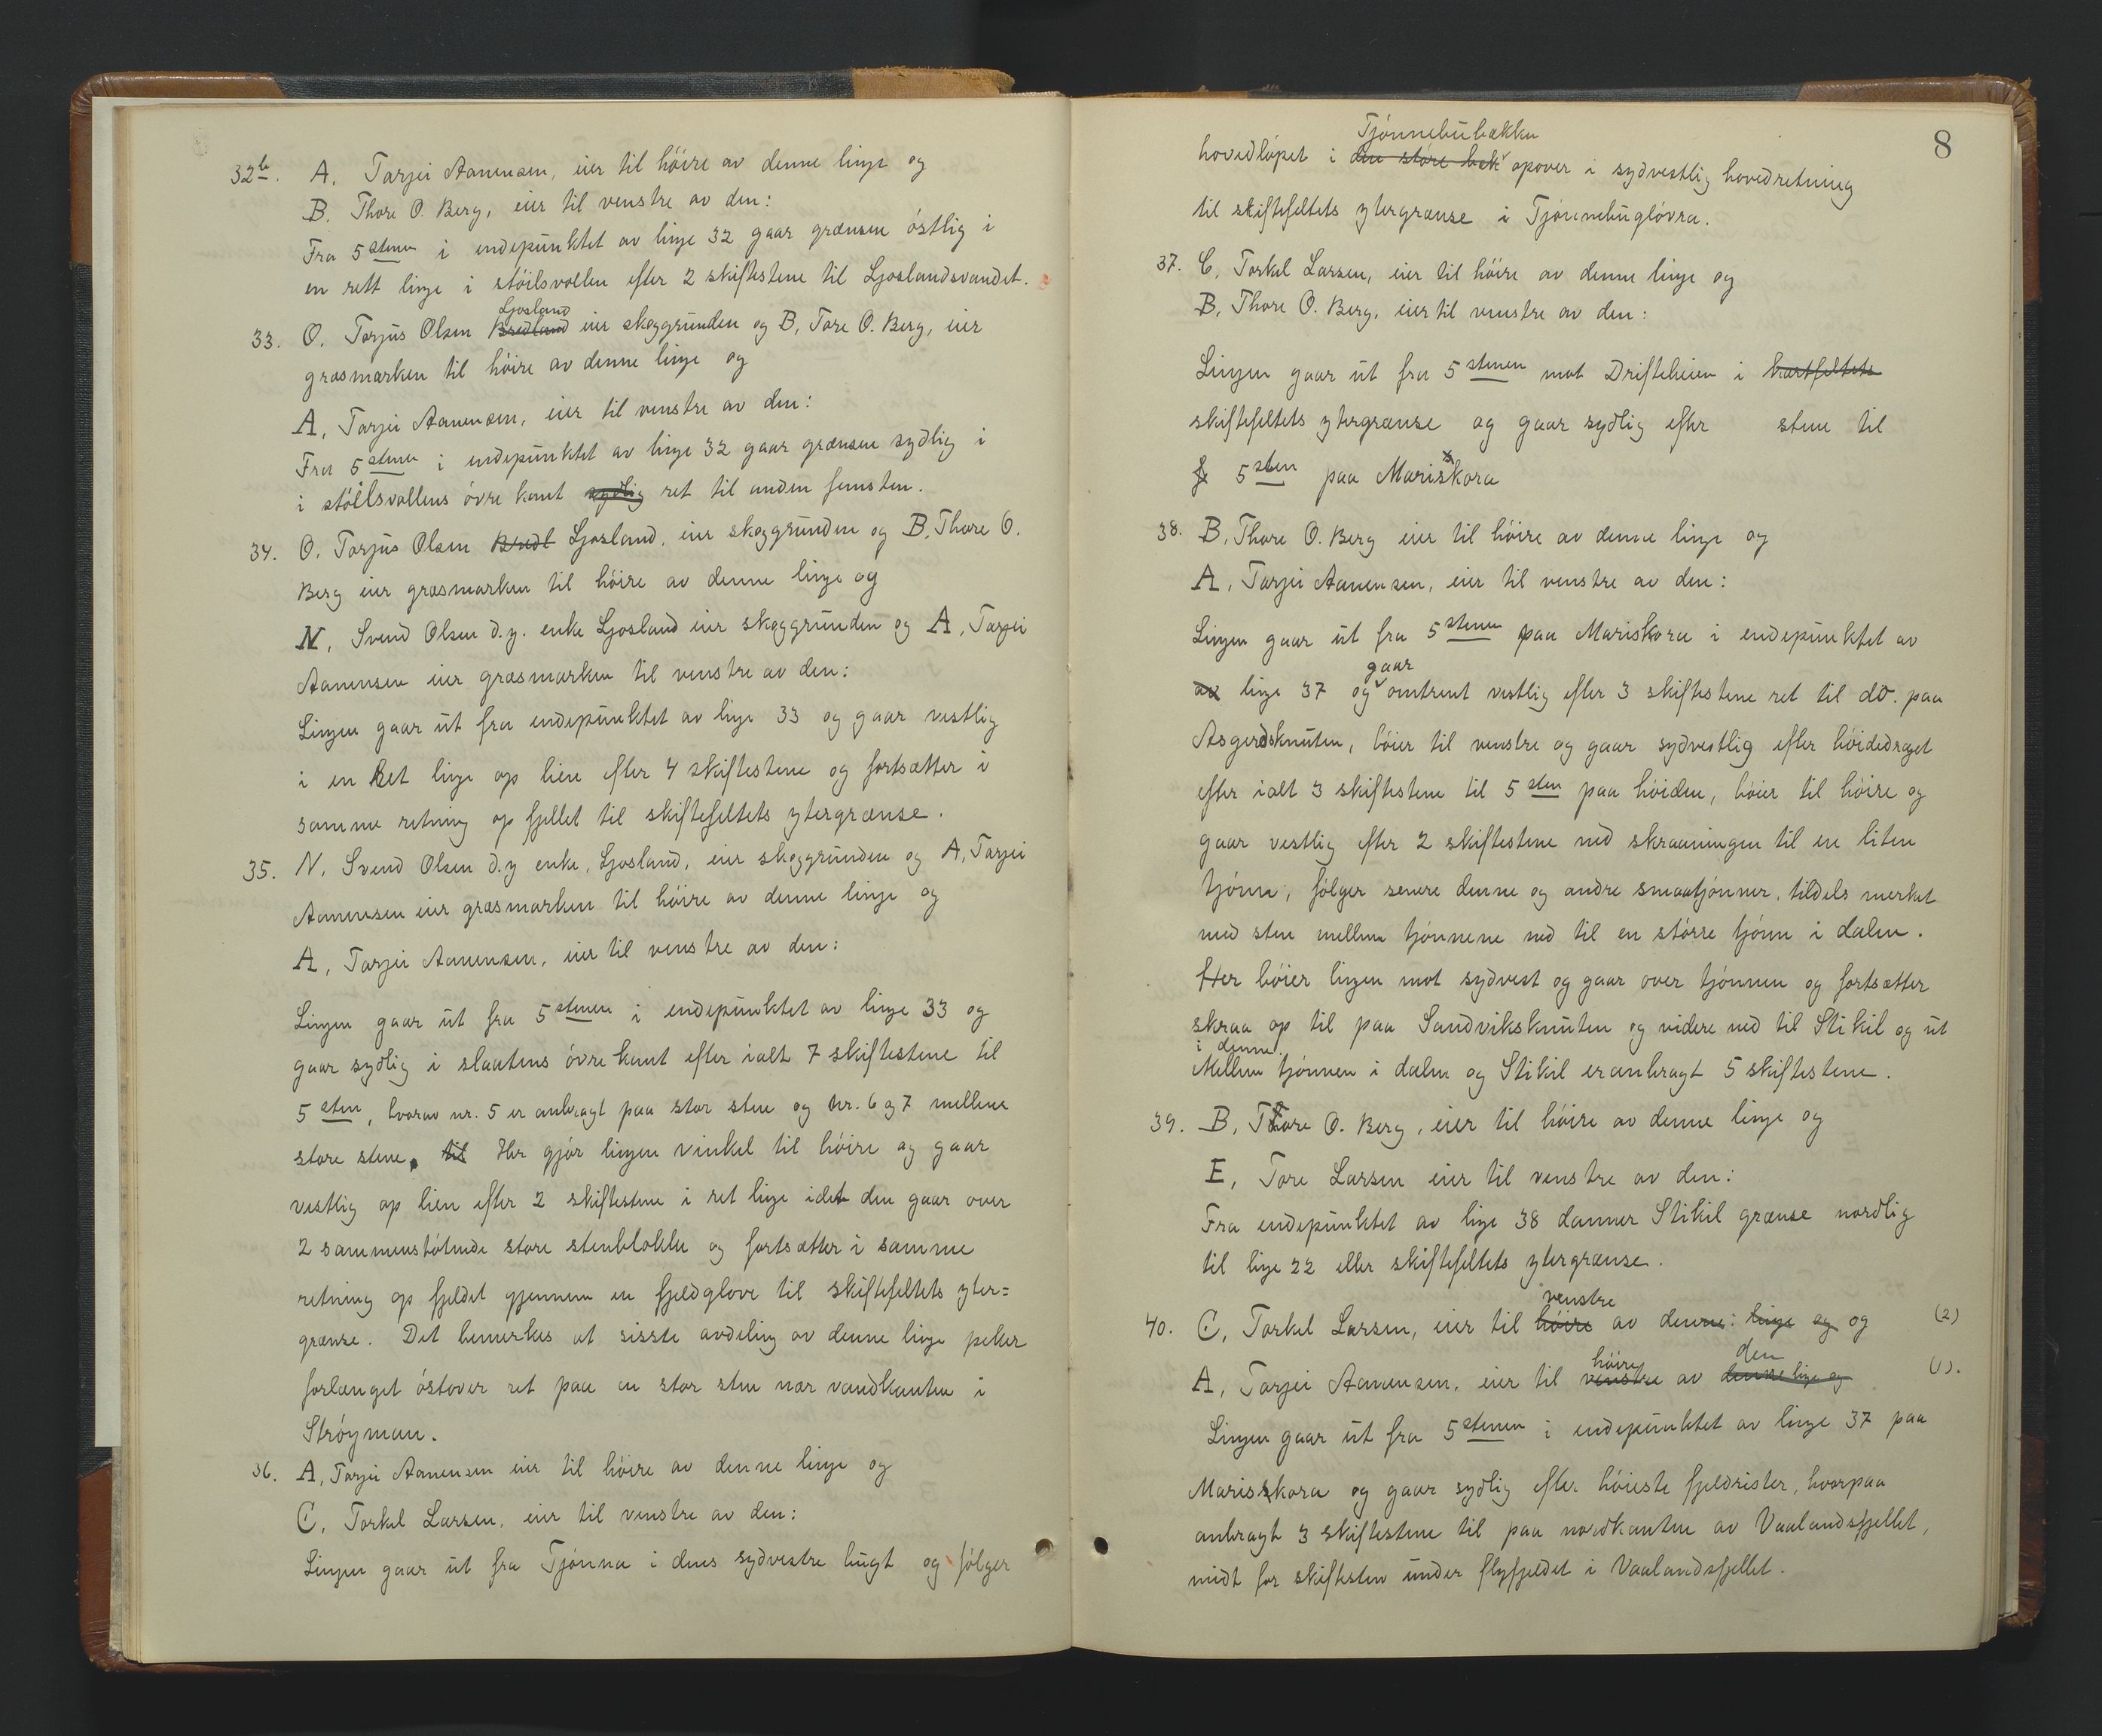 32b. A. Tarjei Aanensen, eier til høire av denne linje og
B. Thore O. Berg, eier til venstre av den:
Fra 5 stenen i endepunktet av linje 32 gaar grænsen østlig i
en rett linje i støilsvollen efter 2 skiftestene til Ljoslandsvandet.
Ljosland
33. O. Torjus Olsen Bredland eier skoggrunden og B, Tore O. Berg, eier
græsmarken til høire av denne linje og
A, Tarjei Aanensen, eier til venstre av den:
Fra 5 stenen i endepunktet av linje 32 gaar grænsen sydlig i
i støilsvollens øvre kant sydlig ret til anden femsten.
34. O. Torjus Olsen Bredl Ljosland, eier skoggrunden og B, Thore O.
Berg eier græsmarken til høire av denne linje og
N, Svend Olsen d.y. enke Ljosland eier skoggrunden og A, Tarjei
Aanensen eier græsmarken til venstre av den:
Linjen gaar ut fra endepunktet av linje 33 og gaar vestlig
i en ret linje op lien efter 4 skiftestene og fortsætter i
samme retning op fjellet til skiftefeltets ytergrænse.
35. N, Svend Olsen d.y enke, Ljosland, eier skoggrunden og A, Tarjei
Aanensen eier græsmarken til høire av denne linje og
A, Tarjei Aanensen, eier til venstre av den:
Linjen gaar ut fra 5 stenen i endepunktet av linje 33 og
gaar sydlig i slaatens øvre kant efter ialt 7 skiftestene til
5 sten, hvorav nr. 5 er anbragt paa stor sten og nr. 6 og 7 mellem
store stene. til Her gjør linjen vinkel til høire og gaar
vestlig op lien efter 2 skiftestene i ret linje idet den gaar over
2 sammenstøtende store stenblokke og fortsætter i samme
retning op fjeldet gjennem en fjeldgløve til skiftefeltets yter=
grænse. Det bemerkes at sisste avdeling av denne linje peker
forlænget østover ret paa en stor sten nær vandkanten i
Strøyman.
36. A, Tarjei Aanensen eier til høire av denne linje og
C, Torkel Larsen, eier til venstre av den:
Linjen gaar ut fra Tjønna i dens sydvestre bugt og følger
8
Tjønnebubækken
hovedløpet i den store bæk opover i sydvestlig hovedretning
til skiftefeltets ytergrænse i Tjønnebugløvra.
37. C, Torkel Larsen, eier til høire av denne linje og
B, Thore O. Berg, eier til venstre av den:
Linjen gaar ut fra 5 stenen mot Drifteheien i kartfeltets
skiftefeltets ytergrænse og gaar sydlig efter stene til
f 5 sten paa Mariskora
38. B, Thore O. Berg eier til høire av denne linje og
A, Tarjei Aanensen, eier til venstre av den:
Linjen gaar ut fra 5 stenen paa Mariskora i endepunktet av
gaar
av linje 37 og omtrent vestlig efter 3 skiftestene ret til do. paa
Asgerdsknuten, bøier til venstre og gaar sydvestlig efter høidedraget
efter ialt 3 skiftestene til 5 sten paa høiden, bøier til høire og
gaar vestlig efter 2 skiftestene ned skraaningen til en liten
tjønn, følger senere denne og andre smaatjønner, tildels merket
med sten mellem tjønnene ned til en større tjønn i dalen.
Her bøier linjen mot sydvest og gaar over tjønnen og fortsætter
skraa op til paa Sandviksknuten og videre ned til Stikil og ut
i denne.
Mellem tjønnen i dalen og Stikil er anbragt 5 skiftestene.
39. B, Thore O. Berg, eier til høire av denne linje og
E, Tore Larsen eier til venstre av den:
Fra endepunktet av linje 38 danner Stikil grænse nordlig
til linje 22 eller skiftefeltets ytergrænse.
venstre
40. C, Torkel Larsen, eier til høire av denne: linje og og (2)
høire den
A, Tarjei Aanensen, eier til venstre av denne linje og (1).
Linjen gaar ut fra 5 stenen i endepunktet av linje 37 paa
Mariskora og gaar sydlig efter høieste fjeldrister, hvorpaa
anbragt 3 skiftestene til paa nordkanten av Vaalandsfjellet,
midt for skiftesten under flyfjeldet i Vaalandsfjellet.